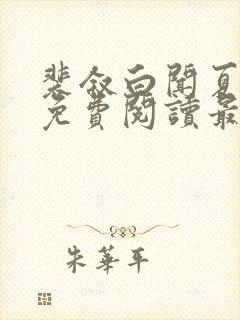 裴叙白闻夏
免費閱讀最
朱華平